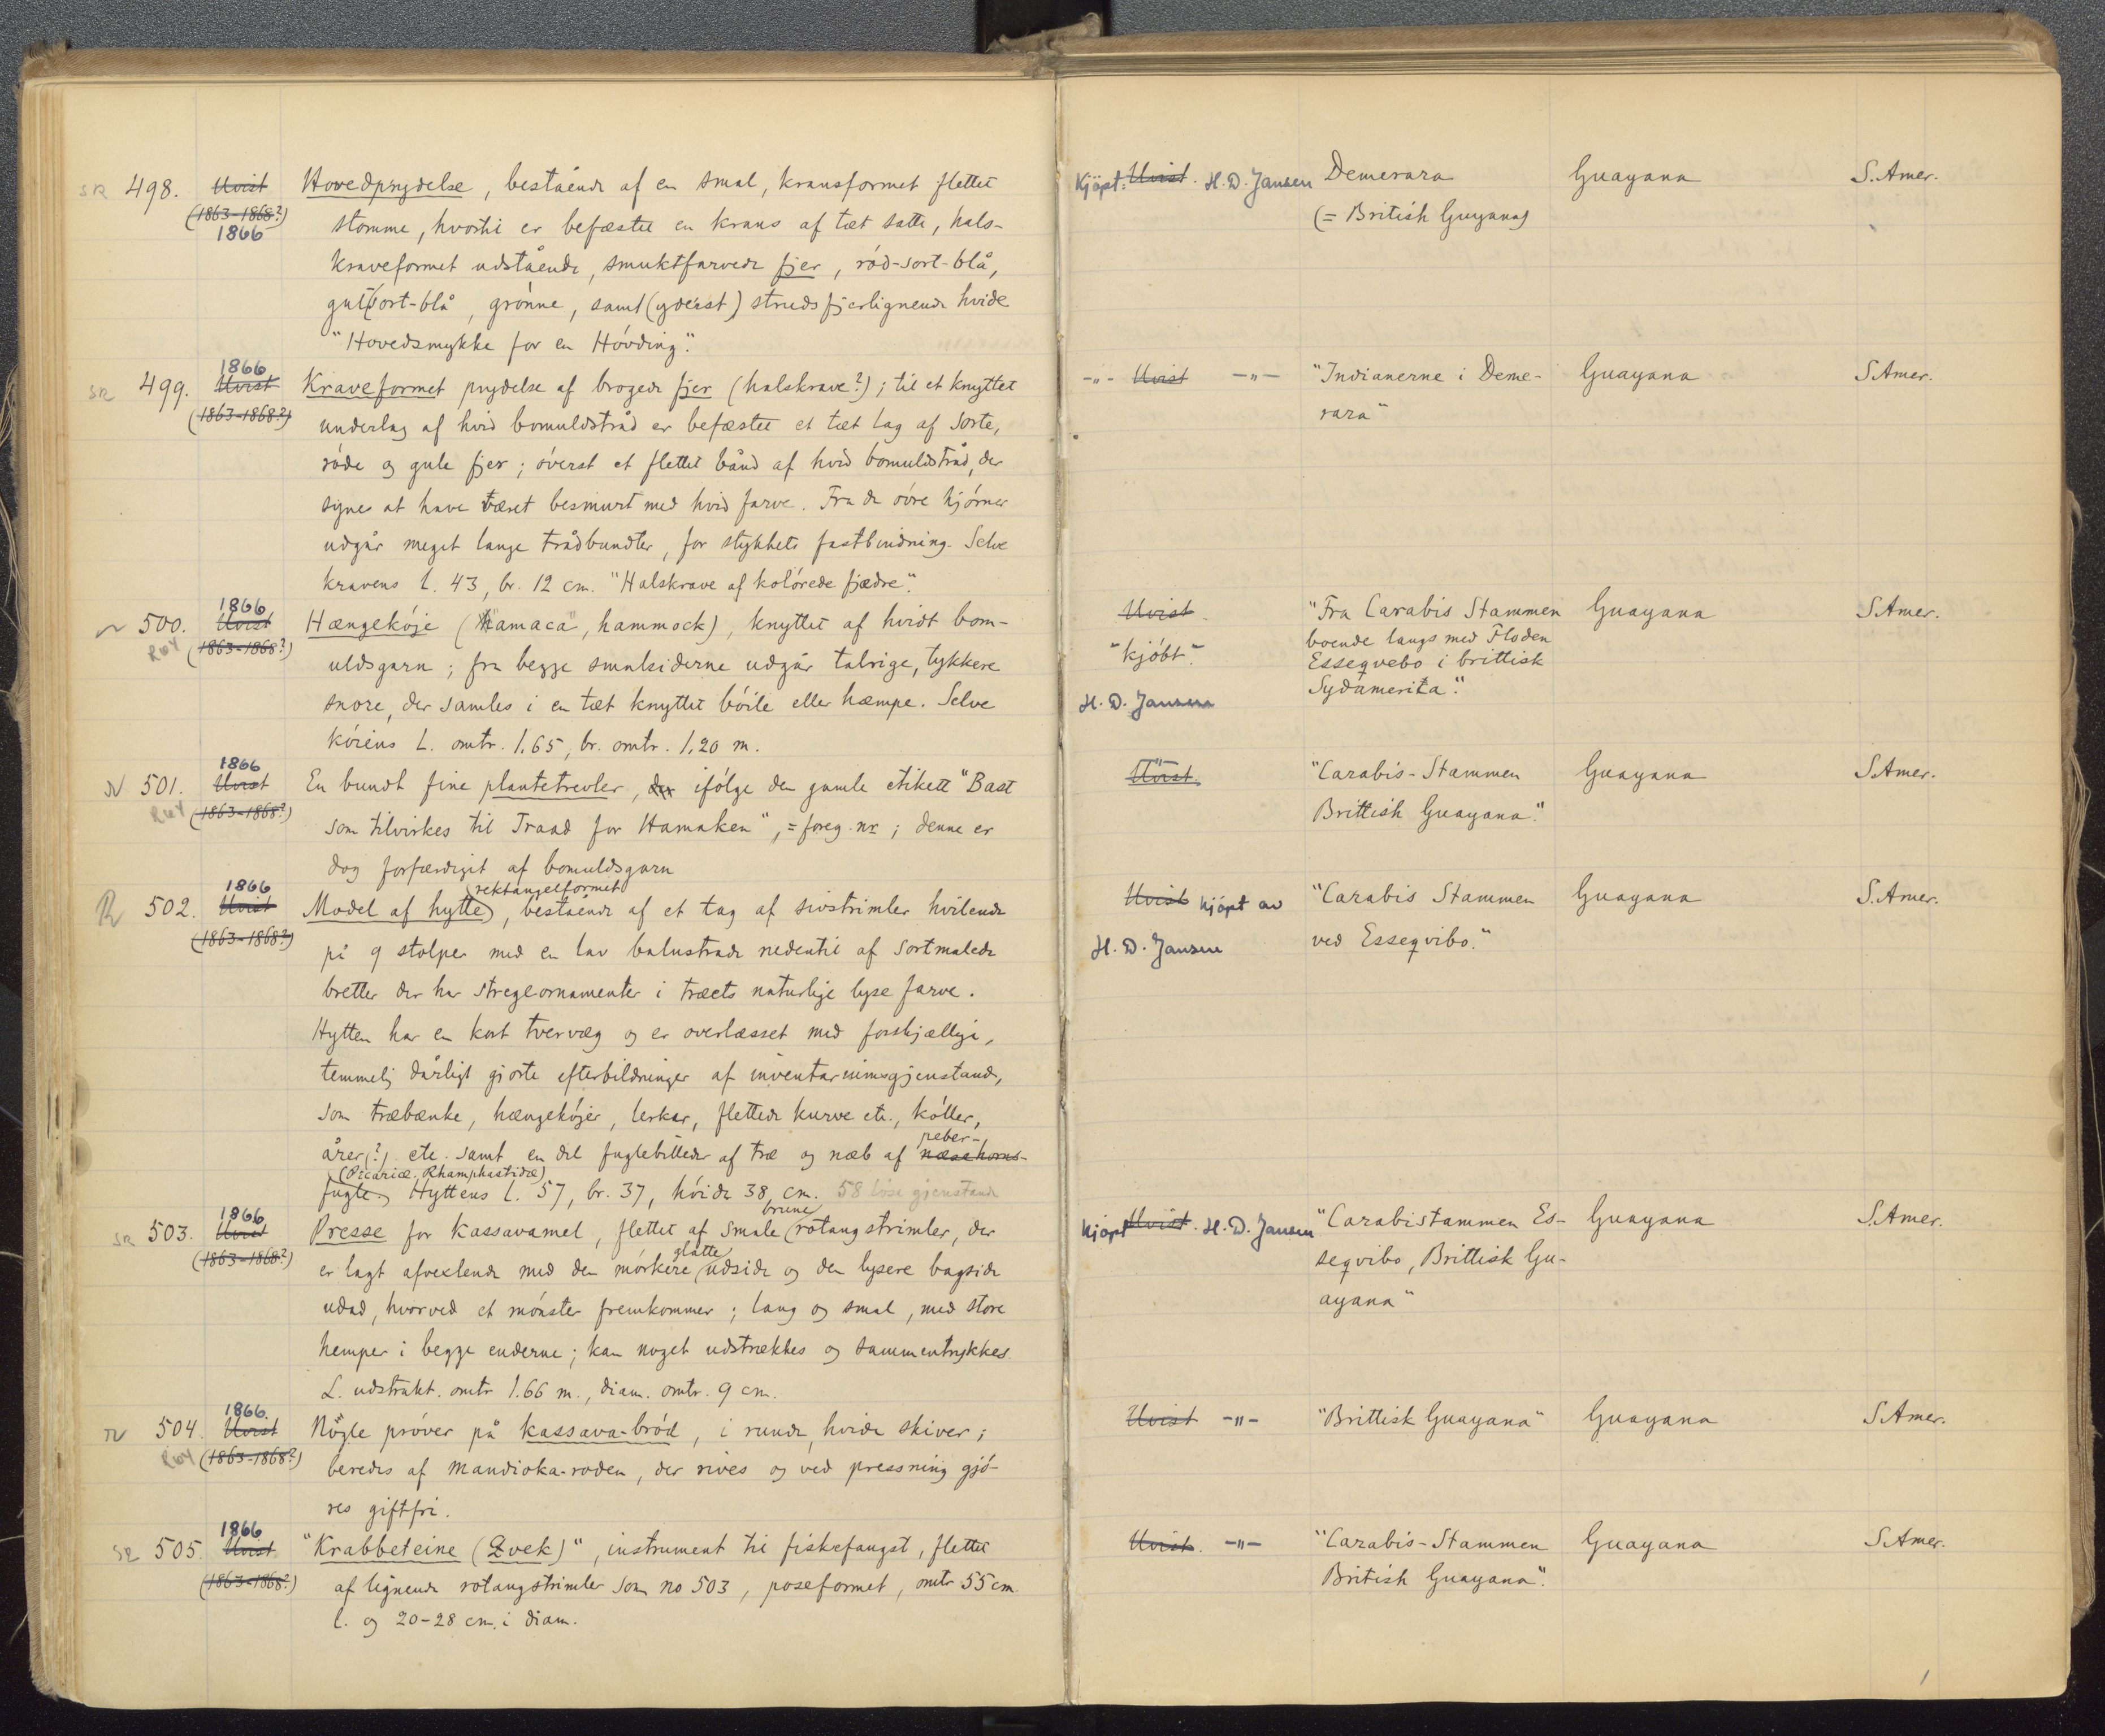 SR 498. Uvist Hovedprydelse, bestående af en smal, kransformet flettet Kjöpt: Uvist. H. D. Jansen Demerara Guayana S. Amer.
(1863-1868?) 1866 stomme, hvortil er befæstet en krans af tæt satte, hals- (= British Guyana)
kraveformet udstående, smuktfarvede fjer, röd-sort-blå,
gul-sort-blå, grönne, samt (yderst) strudsfjerlignende hvide
"Hovedsmykke for en Hövding".
1866
SR 499. Uvist Kraveformet prydelse af brogede fjer (halskrave?); til et knyttet -"- Uvist -"- "Indianerne i Deme- Guayana S. Amer.
(1863-1868?) underlag af hvid bomuldstråd er befæstet et tæt lag af sorte, rara"
röde og gule fjer; överst et flettet bånd af hvid bomuldstråd, der
synes at have været besmurt med hvid farve. Fra de övre hjörner
udgår meget lange trådbundter, for stykkets fastbindning. Selve
kravens l. 43, br. 12 cm. "Halskrave af kolörede fjædre".
1866
500. Uvist Hængeköje ("hamaca", hammock), knyttet af hvidt bom- Uvist "Fra Carabis Stammen Guayana S. Amer.
(1863-1868?) uldsgarn; fra begge smalsiderne udgår talrige, tykkere "kjöbt". boende langs med Floden
Esseqvebo i brittisk
snore, der samles i en tæt knyttet böile eller hæmpe. Selve H. D. Jansen Sydamerika".
köiens L. omtr. 1.65, br. omtr. 1,20 m.
1866
501. Uvist En bundt fine plantetrevler, der ifölge den gamle etikett "Bast -"- Uvist. "Carabis-Stammen Guayana S. Amer.
(1863-1868?) som tilvirkes til Traad for Hamaken", = foreg. nr; denne er Brittish Guayana".
dog forfærdiget af bomuldsgarn
1866 rektangelformet
R 502. Uvist Model af hytte, bestående af et tag af sivstrimler hvilende Uvist kjöpt av "Carabis Stammen Guayana S. Amer.
(1863-1868?) på 9 stolper med en lav balustrade nedentil af sortmalede H. D. Jansen ved Esseqvibo."
bretter der har stregeornamenter i træets naturlige lyse farve.
Hytten har en kort tvervæg og er overlæsset med forskjællige,
temmelig dårligt gjorte efterbildninger af inventariumsgjenstande,
som træbænke, hængeköjer, lerkar, flettede kurve etc., köller,
peber-
årer(?) etc. samt en del fuglebilleder af træ og næb af næsehorns-
(Picariæ. Rhamphastidæ)
fugle. Hyttens l. 57, br. 37, höide 38 cm. 58 löse gjenstande
1866 brune
SR 503. Uvist Presse for kassavamel, flettet af smale rotangstrimler, der kjöpt Uvist. H. D. Jansen "Carabistammen Es- Guayana S. Amer.
glatte
(1863-1868?) er lagt afvexlende med den mörkere udside og den lysere bagside seqvibo, Brittisk Gu-
udad, hvorved et mönster fremkommer; lang og smal, med store ayana"
hemper i begge enderne; kan noget udstrækkes og sammentrykkes.
L. udstrakt. omtr 1.66 m., diam. omtr. 9 cm.
1866.
504. Uvist Nogle pröver på kassava-bröd, i runde, hvide skiver; Uvist -"- "Brittisk Guayana" Guayana S. Amer.
(1863-1868?) beredes af mandioka-roden, der rives og ved presning gjö-
res giftfri.
1866
SR 505. Uvist "Krabbeteine (Qvek)", instrument til fiskefangst, flettet Uvist. -"- "Carabis-Stammen Guayana S. Amer.
(1863-1868?) af lignende rotangstrimler som no 503, poseformet, omtr 55 cm. British Guayana".
l. og 20-28 cm. i diam.